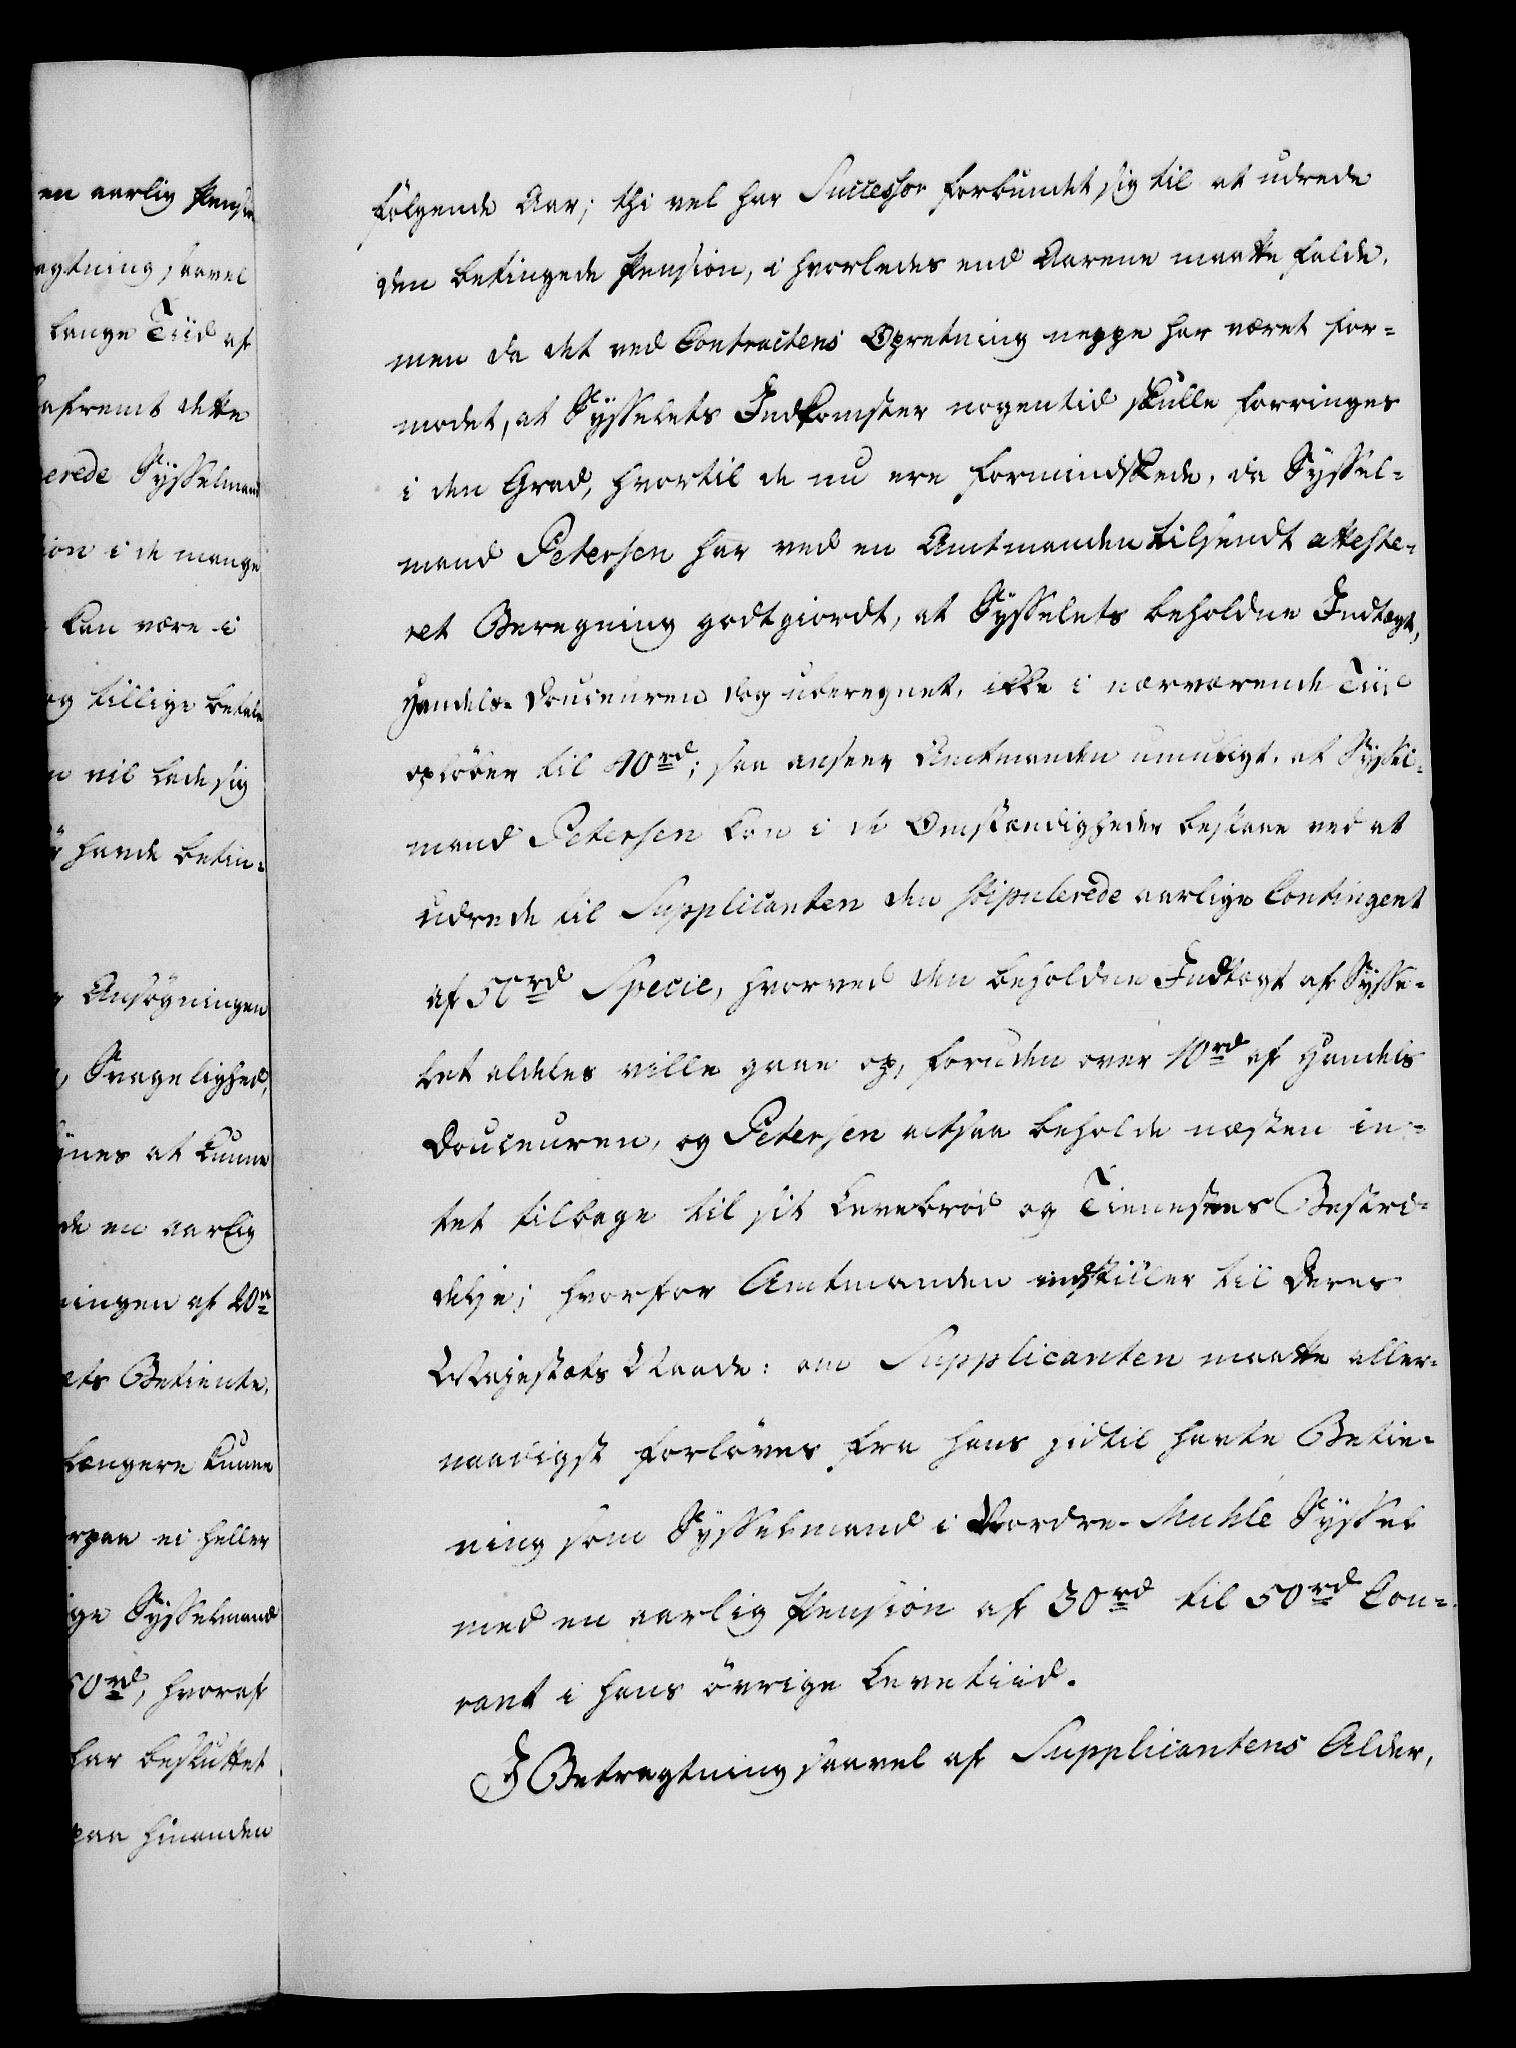 en aarlig Pension
agtning saavel
lange Tiid af
afremt dette
erede Sÿsselmand
ion i de mange
kan være i
og tillige betale
n vil lade sig
havde betin-
Ansøgningen
Svagelighed,
ÿnes at kunne
de en aarlig
ningen af 20rd
ets Betiente,
længere kunne
rpaa ei heller
ge Sÿsselmand
50rd, hvoraf
har besluttet
paa hinanden
følgende Aar; thi vel har Successor forbundet sig til at udrede
den betingede Pension, i hvorledes end Aarene maatte falde,
men da det ved Contractens Opretning neppe har været for-
modet, at Sÿsselets Indkomster nogentid skulle forringes
i den Grad, hvortil de nu ere formindskede, da Sÿssel-
mand Petersen har ved en Amtmanden tilsendt atteste-
ret Beregning godtgiordt, at Sÿsselets beholdne Indtægt,
Handels-Douceuren dog uberegnet, ikke i nærværende Tiid
opløber til 40rd; saa anseer Amtmanden umuligt, at Sÿssel-
mand Petersen kan i de Omstændigheder bestaae ved at
udrede til Supplicanten den stipulerede aarlige Contingent
af 50rd Specie, hvorved den beholdne Indtægt af Sÿsse-
let aldeles ville gaae op, foruden over 10rd af Handels
Douceuren, og Petersen altsaa beholde næsten in-
tet tilbage til sit Levebrød og Tienestens Bestri-
delse; hvorfor Amtmanden indstiller til Deres
Majestæts Naade: om Supplicanten maatte aller-
naadigst forløves fra hans hidtil havte Betie-
ning som Sÿsselmand i Nordre-Muhle Sÿssel
med en aarlig Pension af 30rd til 50rd Cou-
rant i hans øvrige Levetiid.
I Betragtning saavel af Supplicantens Alder,